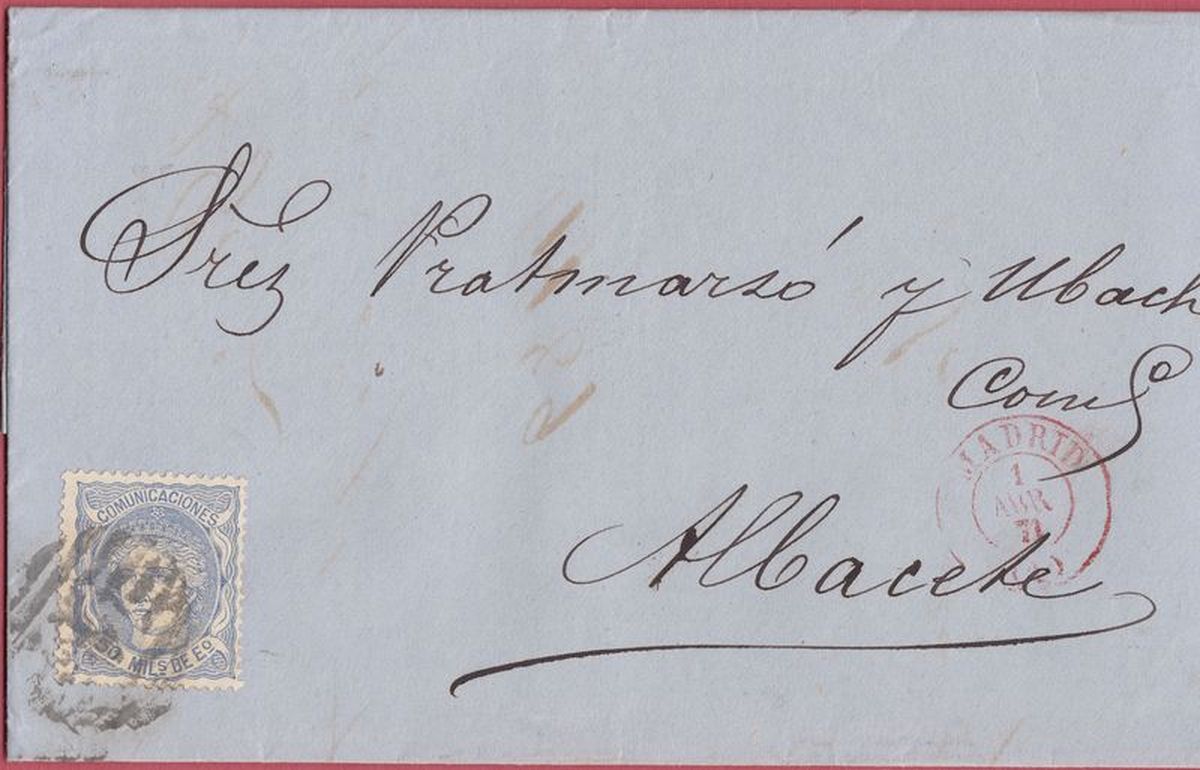 Sres Pratmarsó y Ubach
Com
Albacete
MADRID
1
ABR
71
COMUNICACIONES
50 MILS DE EO